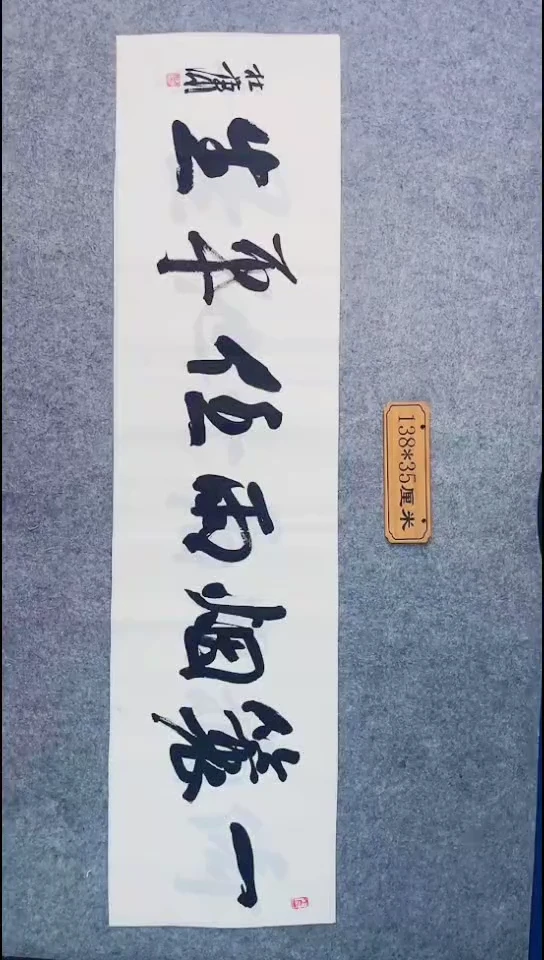 一蓑烟雨任平生
138*35厘米